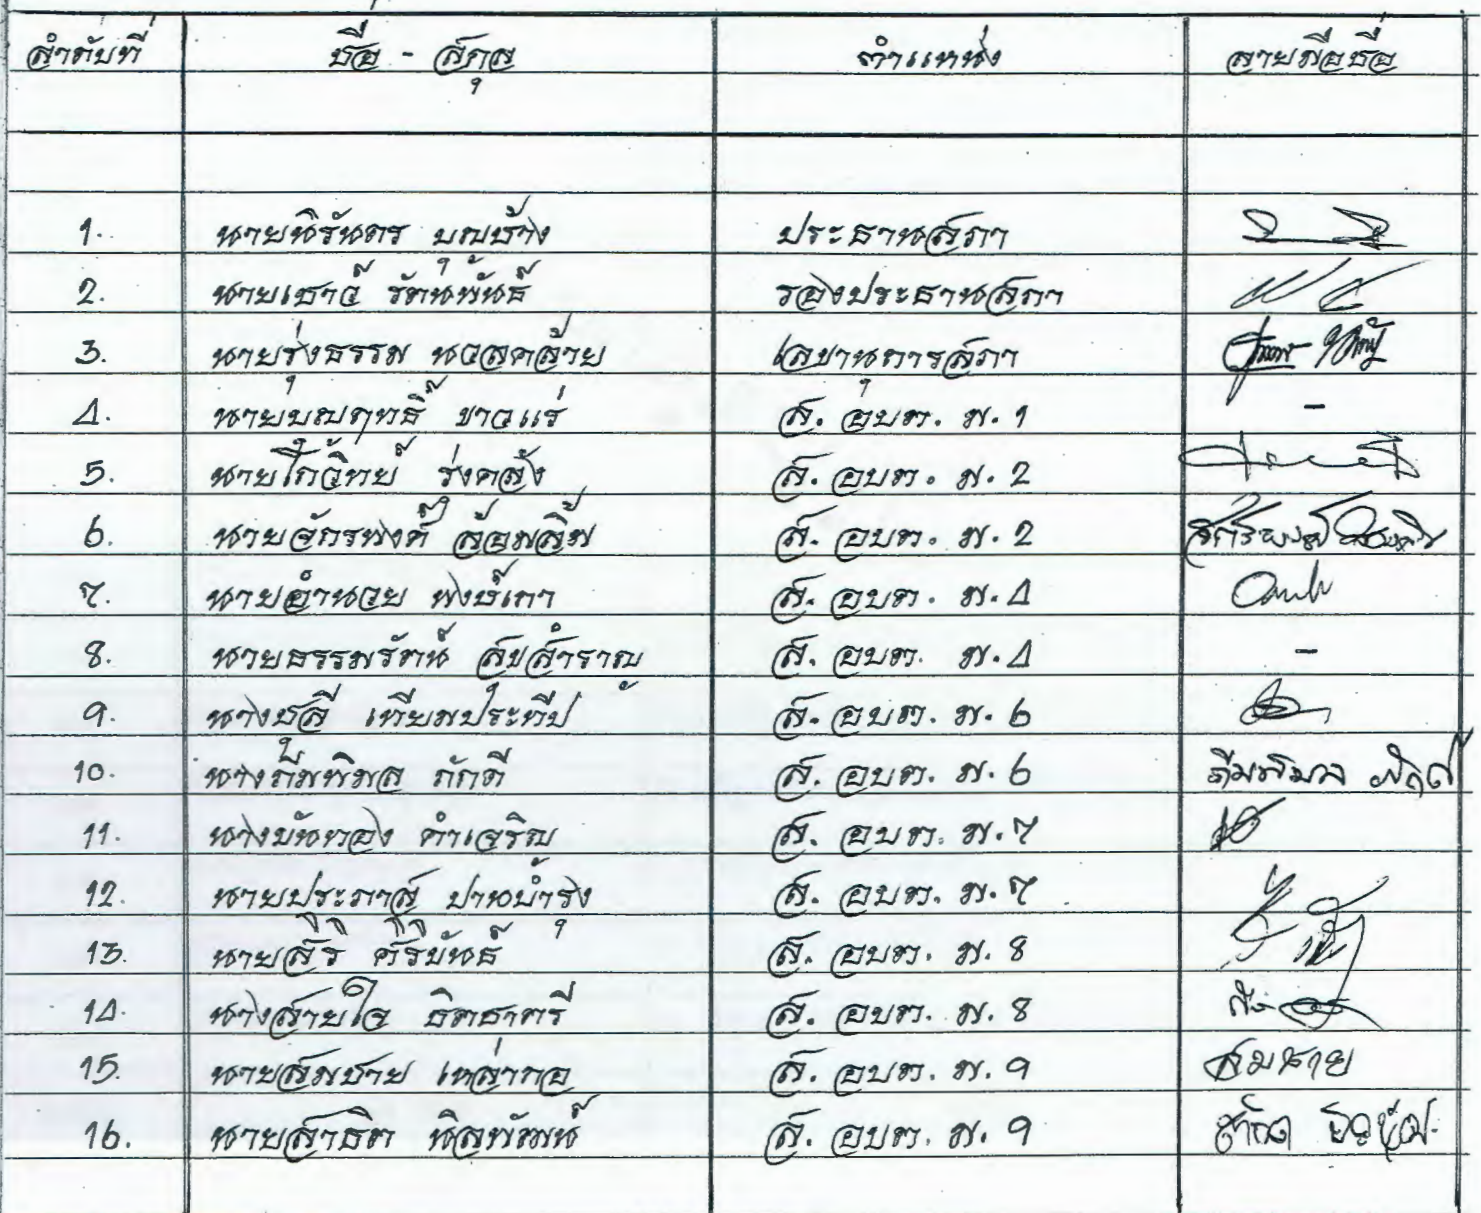 ลำดับที่ ชื่อ - สกุล ตำแหน่ง ลายมือชื่อ
1. นายนิรันดร บุญช้าง ประธานสภา
2. นายเชาว์ รัตนพันธ์ รองประธานสภา
3. นายรุ่งธรรม นวลคล้าย เลขานุการสภา
4. นายบุญฤทธิ์ ขาวแร่ ส. อบต. ม. 1 -
5. นายโกวิทย์ ร่งคลัง ส. อบต. ม. 2
6. นายจักรพงศ์ ล้อมลิ้ม ส. อบต. ม. 2
7. นายอำนวย พงษ์เภา ส. อบต. ม. 4
8. นายธรรมรัตน์ สุขสำราญ ส. อบต. ม. 4 -
9. นางชุลี เทียมประทีป ส. อบต. ม. 6
10. นางภิมพิมล ภักดี ส. อบต. ม. 6 ภิมพิมล ภักดี
11. นางบันทอง คำเจริญ ส. อบต. ม. 7
12. นายประภาส ปานบำรุง ส. อบต. ม. 7
13. นายสิริ ศิริบันธ์ ส. อบต. ม. 8
14. นางสายใจ ธิตธาตรี ส. อบต. ม. 8
15. นายสมชาย เหล่ากอ ส. อบต. ม. 9 สมชาย
16. นายสาธิต นิลพัฒน์ ส. อบต. ม. 9